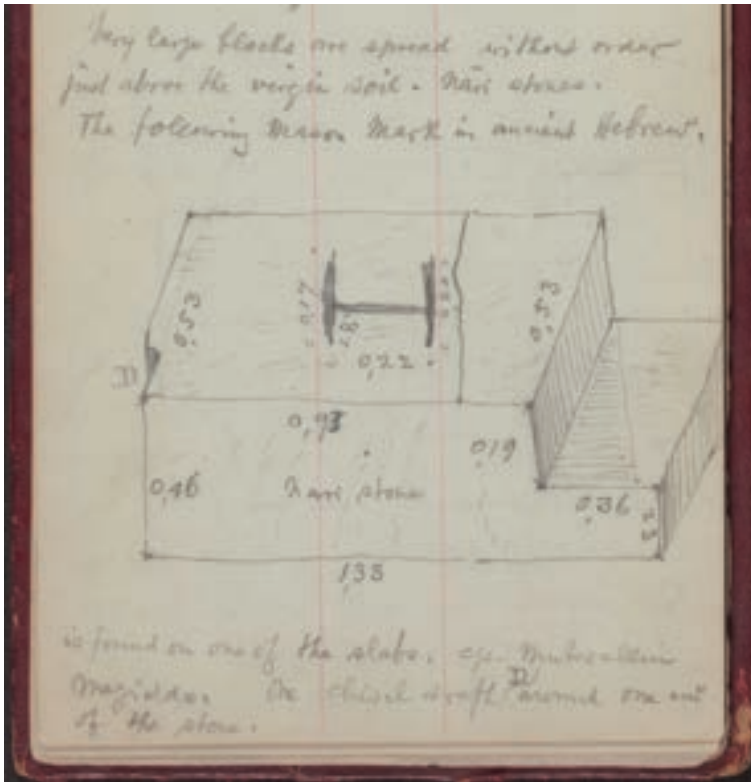 Very large blocks are spread without order
just above the virgin soil. Nari stones.
The following Mason Mark in ancient Hebrew.
0,53
0,17
8
0,22
0,53
D
0,93
0,19
0,46
Nari stone
0,36
1,33
is found on one of the slabs. cp. Mutesellim
Megiddo. One chisel draft D around one end
of the stone.